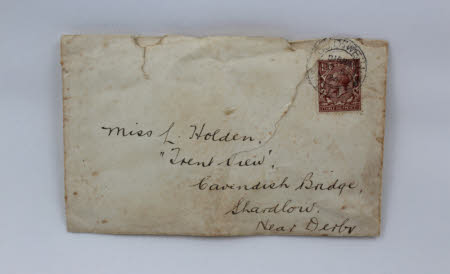 Miss L. Holden,
"Trent View",
Cavendish Bridge,
Shardlow.
Near Derby